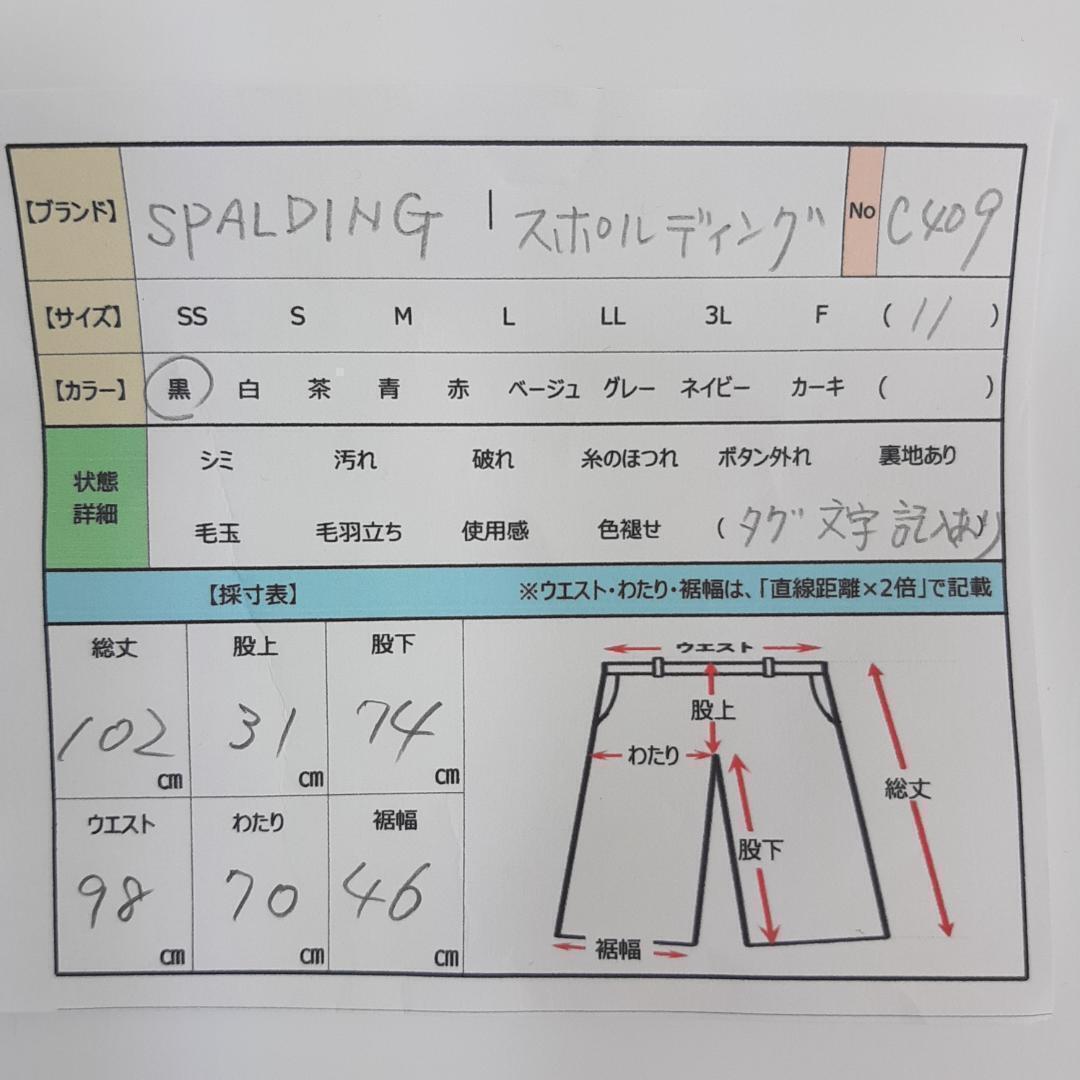 【ブランド】 SPALDING | スポルディング No C409
【サイズ】 SS S M L LL 3L F ( 11 )
【カラー】 黒 白 茶 青 赤 ベージュ グレー ネイビー カーキ ( )
状態詳細 シミ 汚れ 破れ 糸のほつれ ボタン外れ 裏地あり
毛玉 毛羽立ち 使用感 色褪せ ( タグ文字記入あり )
【採寸表】 ※ウエスト・わたり・裾幅は、「直線距離×2倍」で記載
総丈 股上 股下
102 cm 31 cm 74 cm
ウエスト わたり 裾幅
98 cm 70 cm 46 cm
ウエスト
股上
わたり
総丈
股下
裾幅